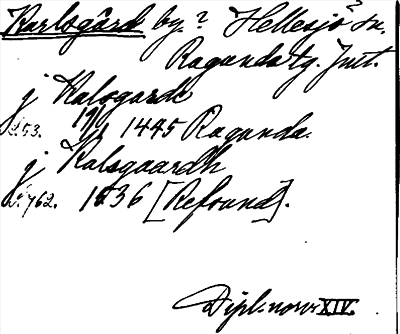 Karlsgård by? Hellesjö? sn.
Ragunda tg. Jmt.
j Kalsgardh
s. 53. 19/1 1445 Ragunda.
j Kalsgaardh
s. 762. 1536 [Refsund].
Dipl. norv. XIV.